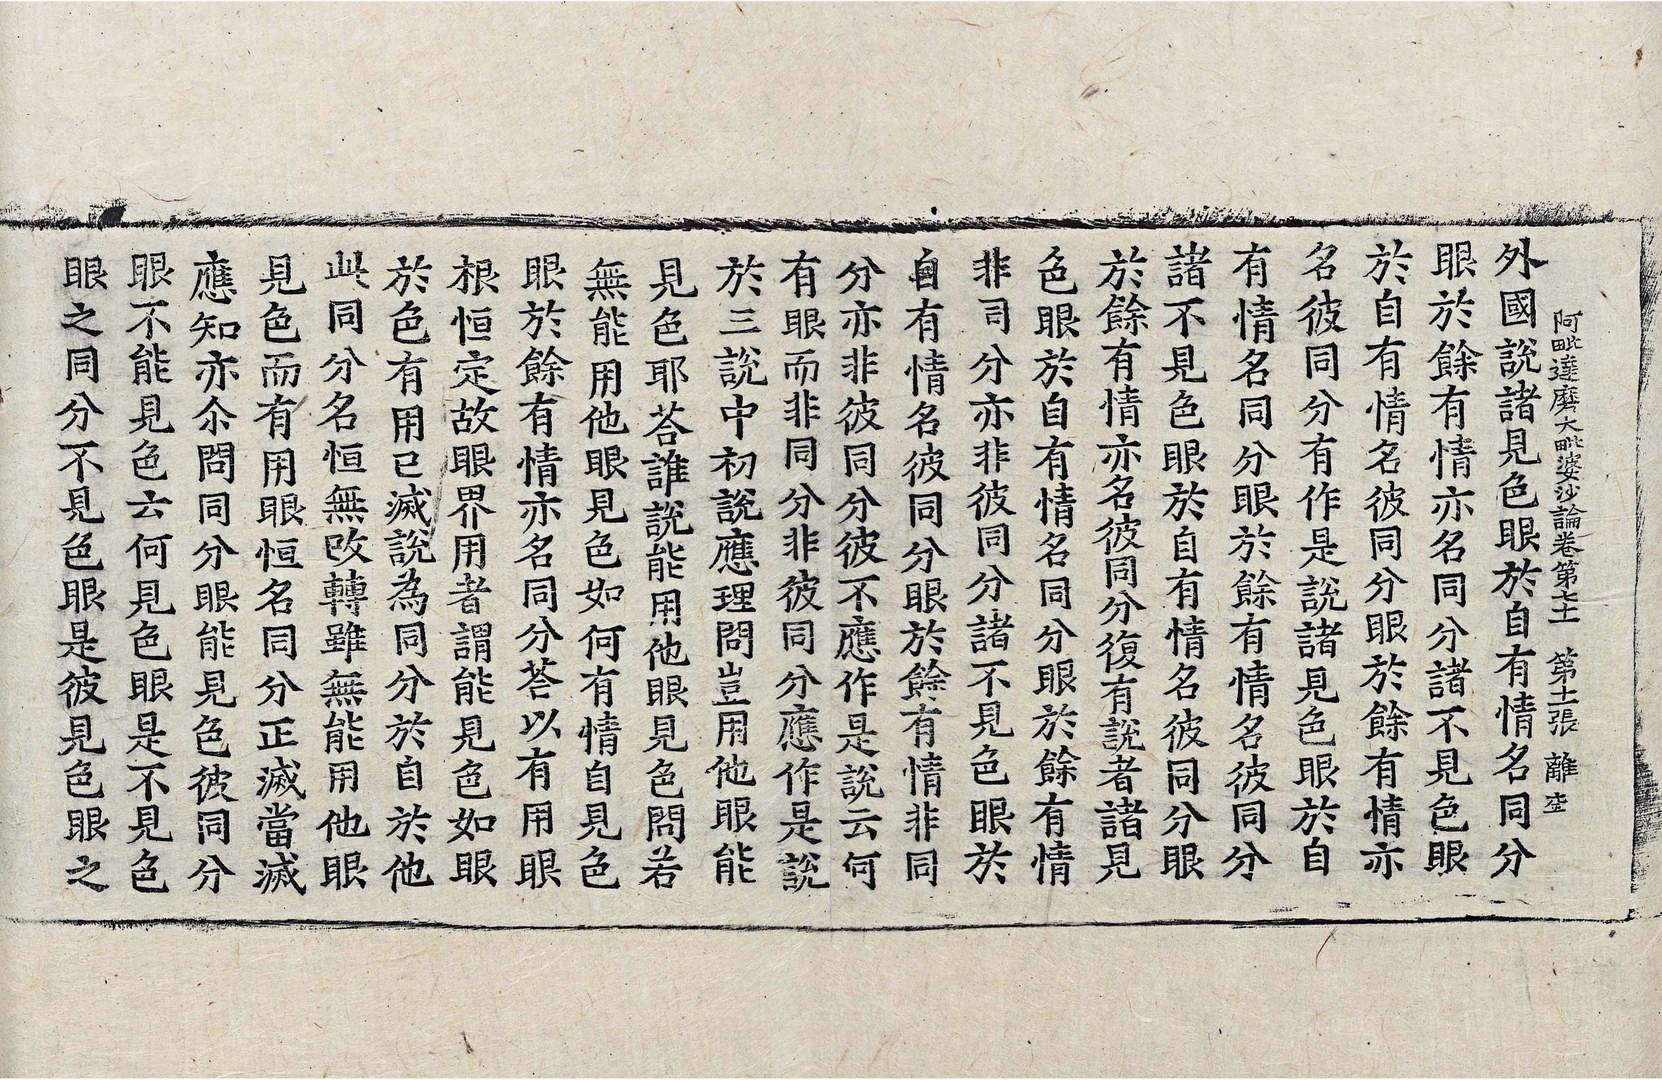 阿毗達磨大毗婆沙論卷第七十一　第十一張　離
外國說諸見色眼於自有情名同分
眼於餘有情亦名同分諸不見色眼
於自有情名彼同分眼於餘有情亦
名彼同分有作是說諸見色眼於自
有情名同分眼於餘有情名彼同分
諸不見色眼於自有情名彼同分眼
於餘有情亦名彼同分復有說者諸見
色眼於自有情名同分眼於餘有情
非司分亦非彼同分諸不見色眼於
自有情名彼同分眼於餘有情非同
分亦非彼同分彼不應作是說云何
有眼而非同分非彼同分應作是說
於三說中初說應理問豈用他眼能
見色耶荅誰說能用他眼見色問若
無能用他眼見色如何有情自見色
眼於餘有情亦名同分荅以有用眼
根恒定故眼界用者謂能見色如眼
於色有用已滅說為同分於自於他
此同分名恒無改轉雖無能用他眼
見色而有用眼恒名同分正滅當滅
應知亦尒問同分眼能見色彼同分
眼不能見色云何見色眼是不見色
眼之同分不見色眼是彼見色眼之